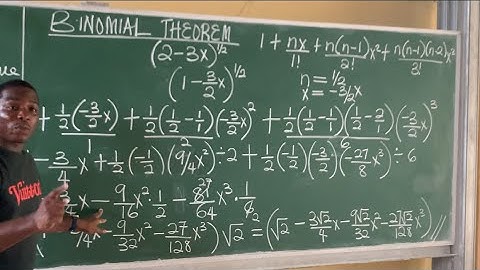 BINOMIAL THEOREM
(2-3x)^1/2
1 + nx/1! + n(n-1)x²/2! + n(n-1)(n-2)x²/3!
(1-3/2x)^1/2
n = 1/2
x = -3/2x
+ 1/2(-3/2x)/1 + 1/2(1/2-1/1)(-3/2x)²/2 + 1/2(1/2-1/1)(1/2-2/1)(-3/2x)³
- 3/4x + 1/2(-1/2)(9/4x²)÷2 + 1/2(-1/2)(-3/2)(-27/8x³)÷6
3/4x - 9/16x²·1/2 - 27 81/64x³·1/6 2
3/4x - 9/32x² - 27/128x³)√2 = (√2 - 3√2/4x - 9√2/32x² - 27√2/128x³)//